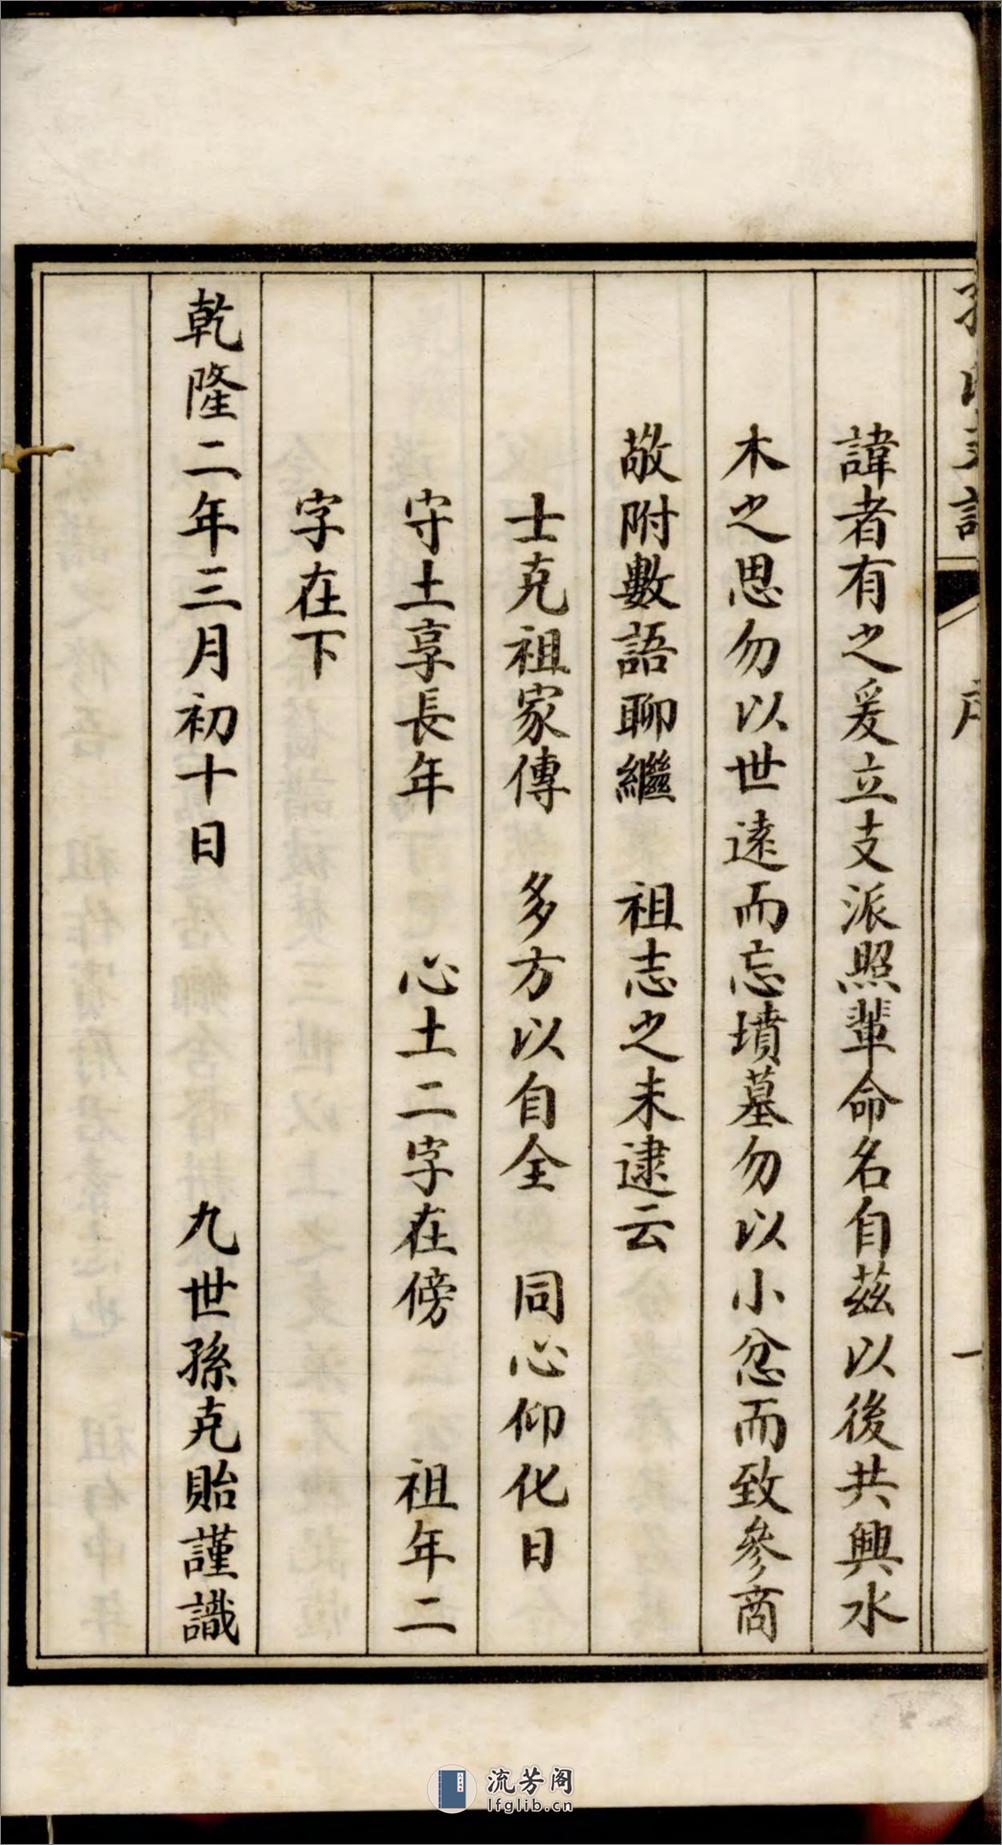 諱者有之爰立支派照輩命名自茲以後共興水
木之思勿以世遠而忘墳墓勿以小忿而致參商
敬附數語聊繼　祖志之未逮云
士克祖家傳　多方以自全　同心仰化日
守土享長年　　心土二字在傍　　祖年二
字在下
乾隆二年三月初十日　　　　九世孫克貽謹識
流芳阁
lfglib.cn